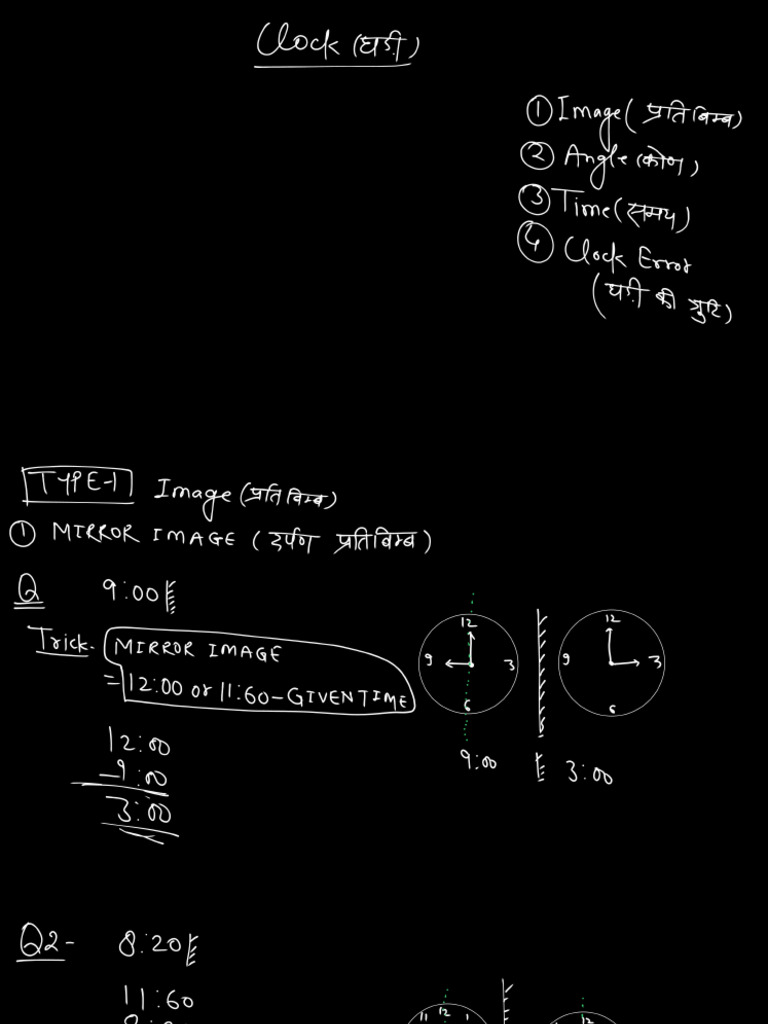 Clock (घड़ी)
① Image (प्रतिबिम्ब)
② Angle (कोण)
③ Time (समय)
④ Clock Error
(घड़ी की त्रुटि)
TYPE-1 Image (प्रतिबिम्ब)
① MIRROR IMAGE (दर्पण प्रतिबिम्ब)
Q 9:00
Trick. MIRROR IMAGE
= 12:00 or 11:60 - GIVEN TIME
12:00
- 9:00
3:00
12
9 3
6
9:00
12
9 3
6
3:00
Q2- 8:20
11:60
11 12 1
12